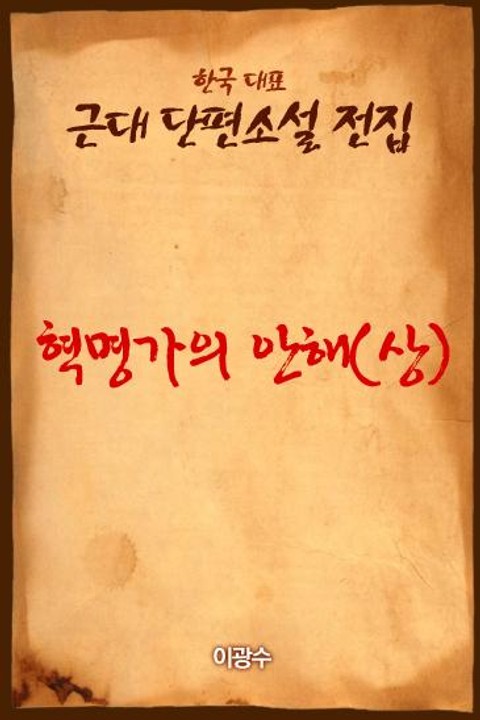 한국 대표
근대 단편소설 전집
혁명가의 안해(상)
이광수